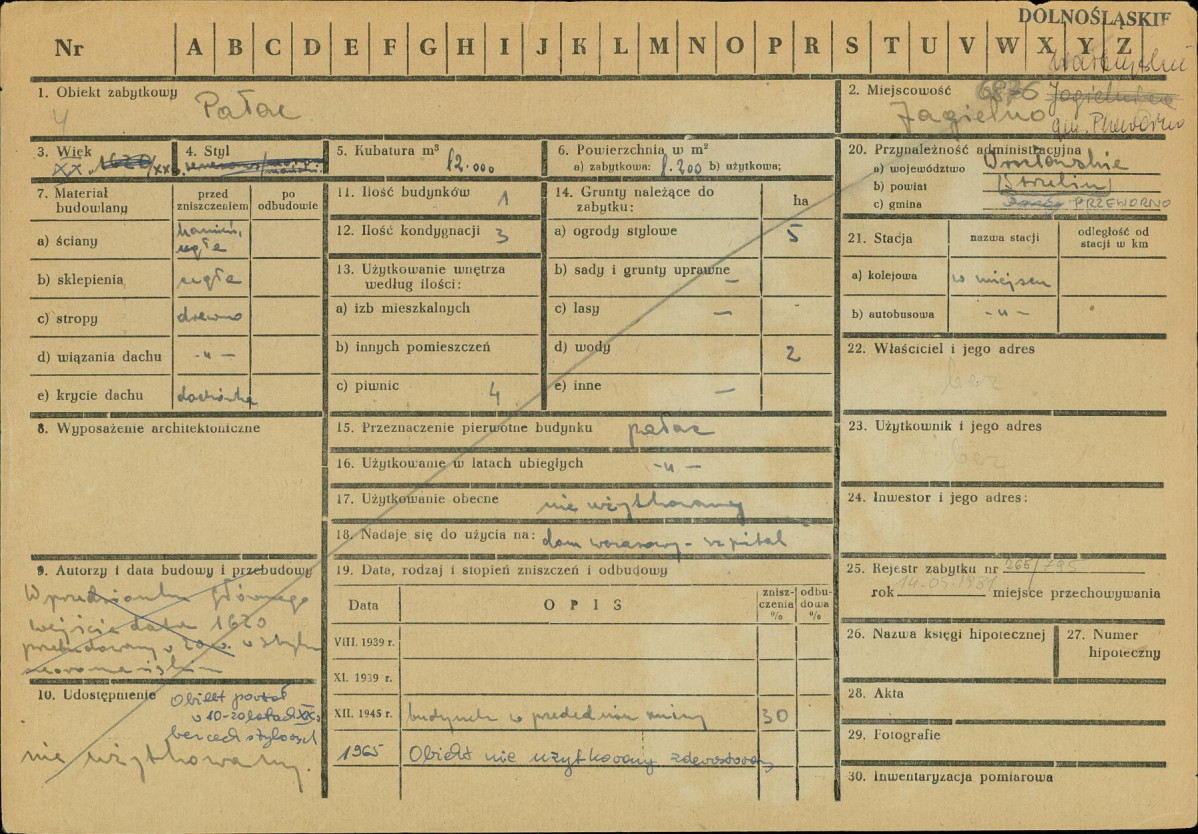 DOLNOŚLĄSKIE
Nr A B C D E F G H I J K L M N O P R S T U V W X Y Z
1. Obiekt zabytkowy
4
Pałac
2. Miejscowość
Jagielno
gm. Przeworno
3. Wiek
XX. 1620/XX
4. Styl
5. Kubatura m³ 12.000
6. Powierzchnia w m²
a) zabytkowa: 1.200 b) użytkowa;
20. Przynależność administracyjna
a) województwo Wrocławskie
b) powiat (Strzelin)
c) gmina PRZEWORNO
7. Materiał budowlany
przed zniszczeniem
po odbudowie
a) ściany kamień, cegła
b) sklepienia cegła
c) stropy drewno
d) wiązania dachu -„-
e) krycie dachu dachówka
8. Wyposażenie architektoniczne
9. Autorzy i data budowy i przebudowy
W przedsionku głównego
wejścia data 1620
przebudowany w 20 w. w stylu
10. Udostępnienie
Obiekt powstał
w 10-20 latach XX w.
bez cech stylowych
nie użytkowany.
11. Ilość budynków 1
12. Ilość kondygnacji 3
13. Użytkowanie wnętrza
według ilości:
a) izb mieszkalnych
b) innych pomieszczeń
c) piwnic 4
14. Grunty należące do
zabytku:
ha
a) ogrody stylowe 5
b) sady i grunty uprawne —
c) lasy — -
d) wody 2
e) inne —
15. Przeznaczenie pierwotne budynku pałac
16. Użytkowanie w latach ubiegłych -„-
17. Użytkowanie obecne nie użytkowany
18. Nadaje się do użycia na: dom wczasowy - szpital
19. Data, rodzaj i stopień zniszczeń i odbudowy
Data
OPIS
znisz-
czenia
%
odbu-
dowa
%
VIII. 1939 r.
XI. 1939 r.
XII. 1945 r. budynek w przededniu ruiny 30
1965 Obiekt nie użytkowany zdewastowany
21. Stacja
nazwa stacji
odległość od
stacji w km
a) kolejowa w miejscu
b) autobusowa -„-
22. Właściciel i jego adres
bez
23. Użytkownik i jego adres
bez
24. Inwestor i jego adres:
25. Rejestr zabytku nr 265/795
rok 14.05.1981 miejsce przechowywania
26. Nazwa księgi hipotecznej
27. Numer
hipoteczny
28. Akta
29. Fotografie
30. Inwentaryzacja pomiarowa